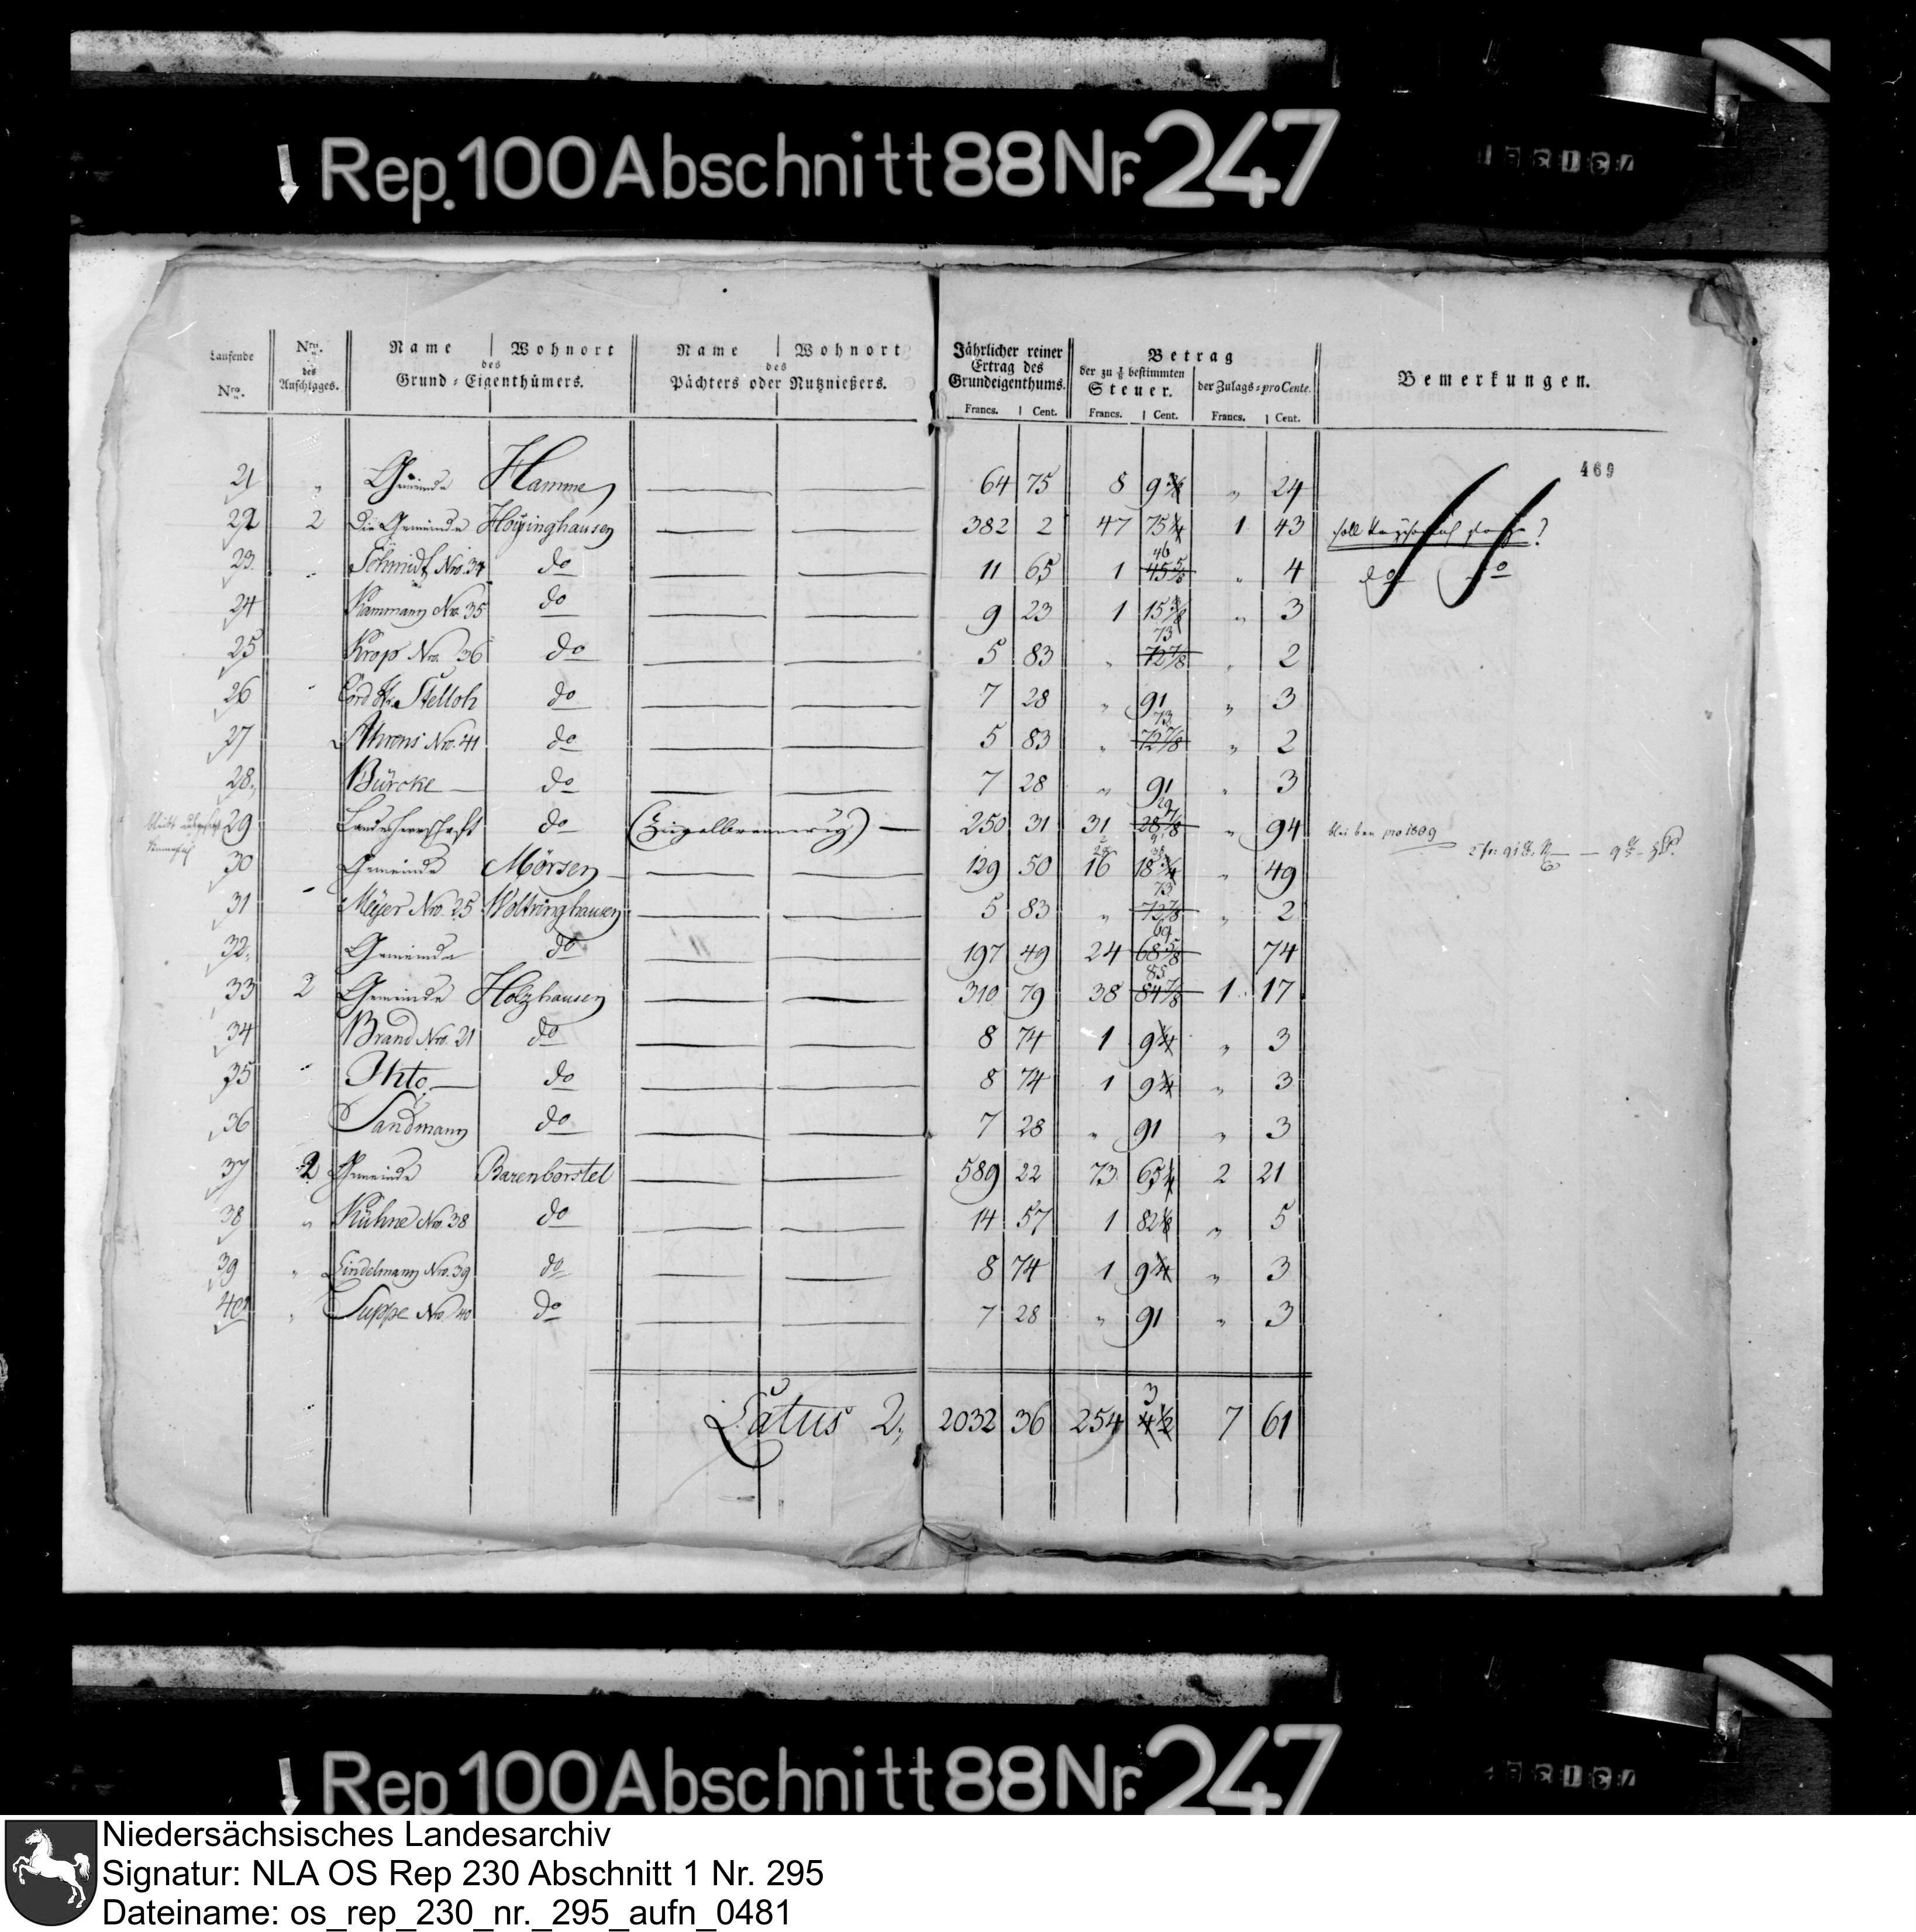 Rep. 100 Abschnitt 88 Nr. 247
Laufende Nro. | Nro. des Anschlages. | Name | Wohnort des Grund-Eigenthümers. | Name | Wohnort des Pächters oder Nutznießers. | Jährlicher reiner Ertrag des Grundeigenthums. Francs. | Cent. | Betrag der zu 1/8 bestimmten Steuer. Francs. | Cent. | der Zulags-proCente. Francs. | Cent. | Bemerkungen.
469
21 | „ | Gemeinde | Hamme | — | — | 64 | 75 | 8 | 9 3/8 | „ | 24
22 | 2 | Die Gemeinde | Hoyinghausen | — | — | 382 | 2 | 47 | 75 1/4 | 1 | 43 | soll
23 | „ | Schmidt Nro. 34 | do | — | — | 11 | 65 | 1 | 46 45 5/8 | „ | 4 | do do
24 | Kammann Nro. 35 | do | — | — | 9 | 23 | 1 | 15 3/8 | „ | 3
25 | Krop Nro. 36 | do | — | — | 5 | 83 | „ | 73 72 7/8 | „ | 2
26 | „ | Cord Hr. Stelloh | do | — | — | 7 | 28 | „ | 91 | „ | 3
27 | Ahrens Nro. 41 | do | — | — | 5 | 83 | „ | 73 72 7/8 | „ | 2
28. | Bürcke | do | — | — | 7 | 28 | „ | 91 | „ | 3
bleibt
29 | Landesherrschaft | do | (Ziegelbrennerey) — | 250 | 31 | 31 | 29 28 7/8 | „ | 94 | bleiben pro 1809
30 | Gemeinde | Mörsen | — | — | 129 | 50 | 16 | 18 3/4 | „ | 49
31 | „ | Meyer Nro. 25 | Woltringhausen | — | — | 5 | 83 | „ | 73 72 7/8 | „ | 2
32. | Gemeinde | do | — | — | 197 | 49 | 24 | 69 68 5/8 | 74
33 | 2 | Gemeinde | Holzhausen | — | — | 310 | 79 | 38 | 85 84 7/8 | 1 | 17
34 | Brand Nro. 21 | do | — | — | 8 | 74 | 1 | 9 1/4 | „ | 3
35 | „ | Ihto | do | — | — | 8 | 74 | 1 | 9 1/4 | „ | 3
36 | Sandmann | do | — | — | 7 | 28 | „ | 91 | „ | 3
37 | 2 | Gemeinde | Barenborstel | — | — | 589 | 22 | 73 | 65 1/4 | 2 | 21
38 | „ | Kühne Nro. 38 | do | — | — | 14 | 57 | 1 | 82 1/8 | „ | 5
39 | „ | Lindelmann Nro. 39 | do | — | — | 8 | 74 | 1 | 9 1/4 | „ | 3
40 | „ | Suppe Nro. 40 | do | — | — | 7 | 28 | „ | 91 | „ | 3
Latus 2, | 2032 | 36 | 254 | 3 4 1/2 | 7 | 61
Rep. 100 Abschnitt 88 Nr. 247
Niedersächsisches Landesarchiv
Signatur: NLA OS Rep 230 Abschnitt 1 Nr. 295
Dateiname: os_rep_230_nr._295_aufn_0481